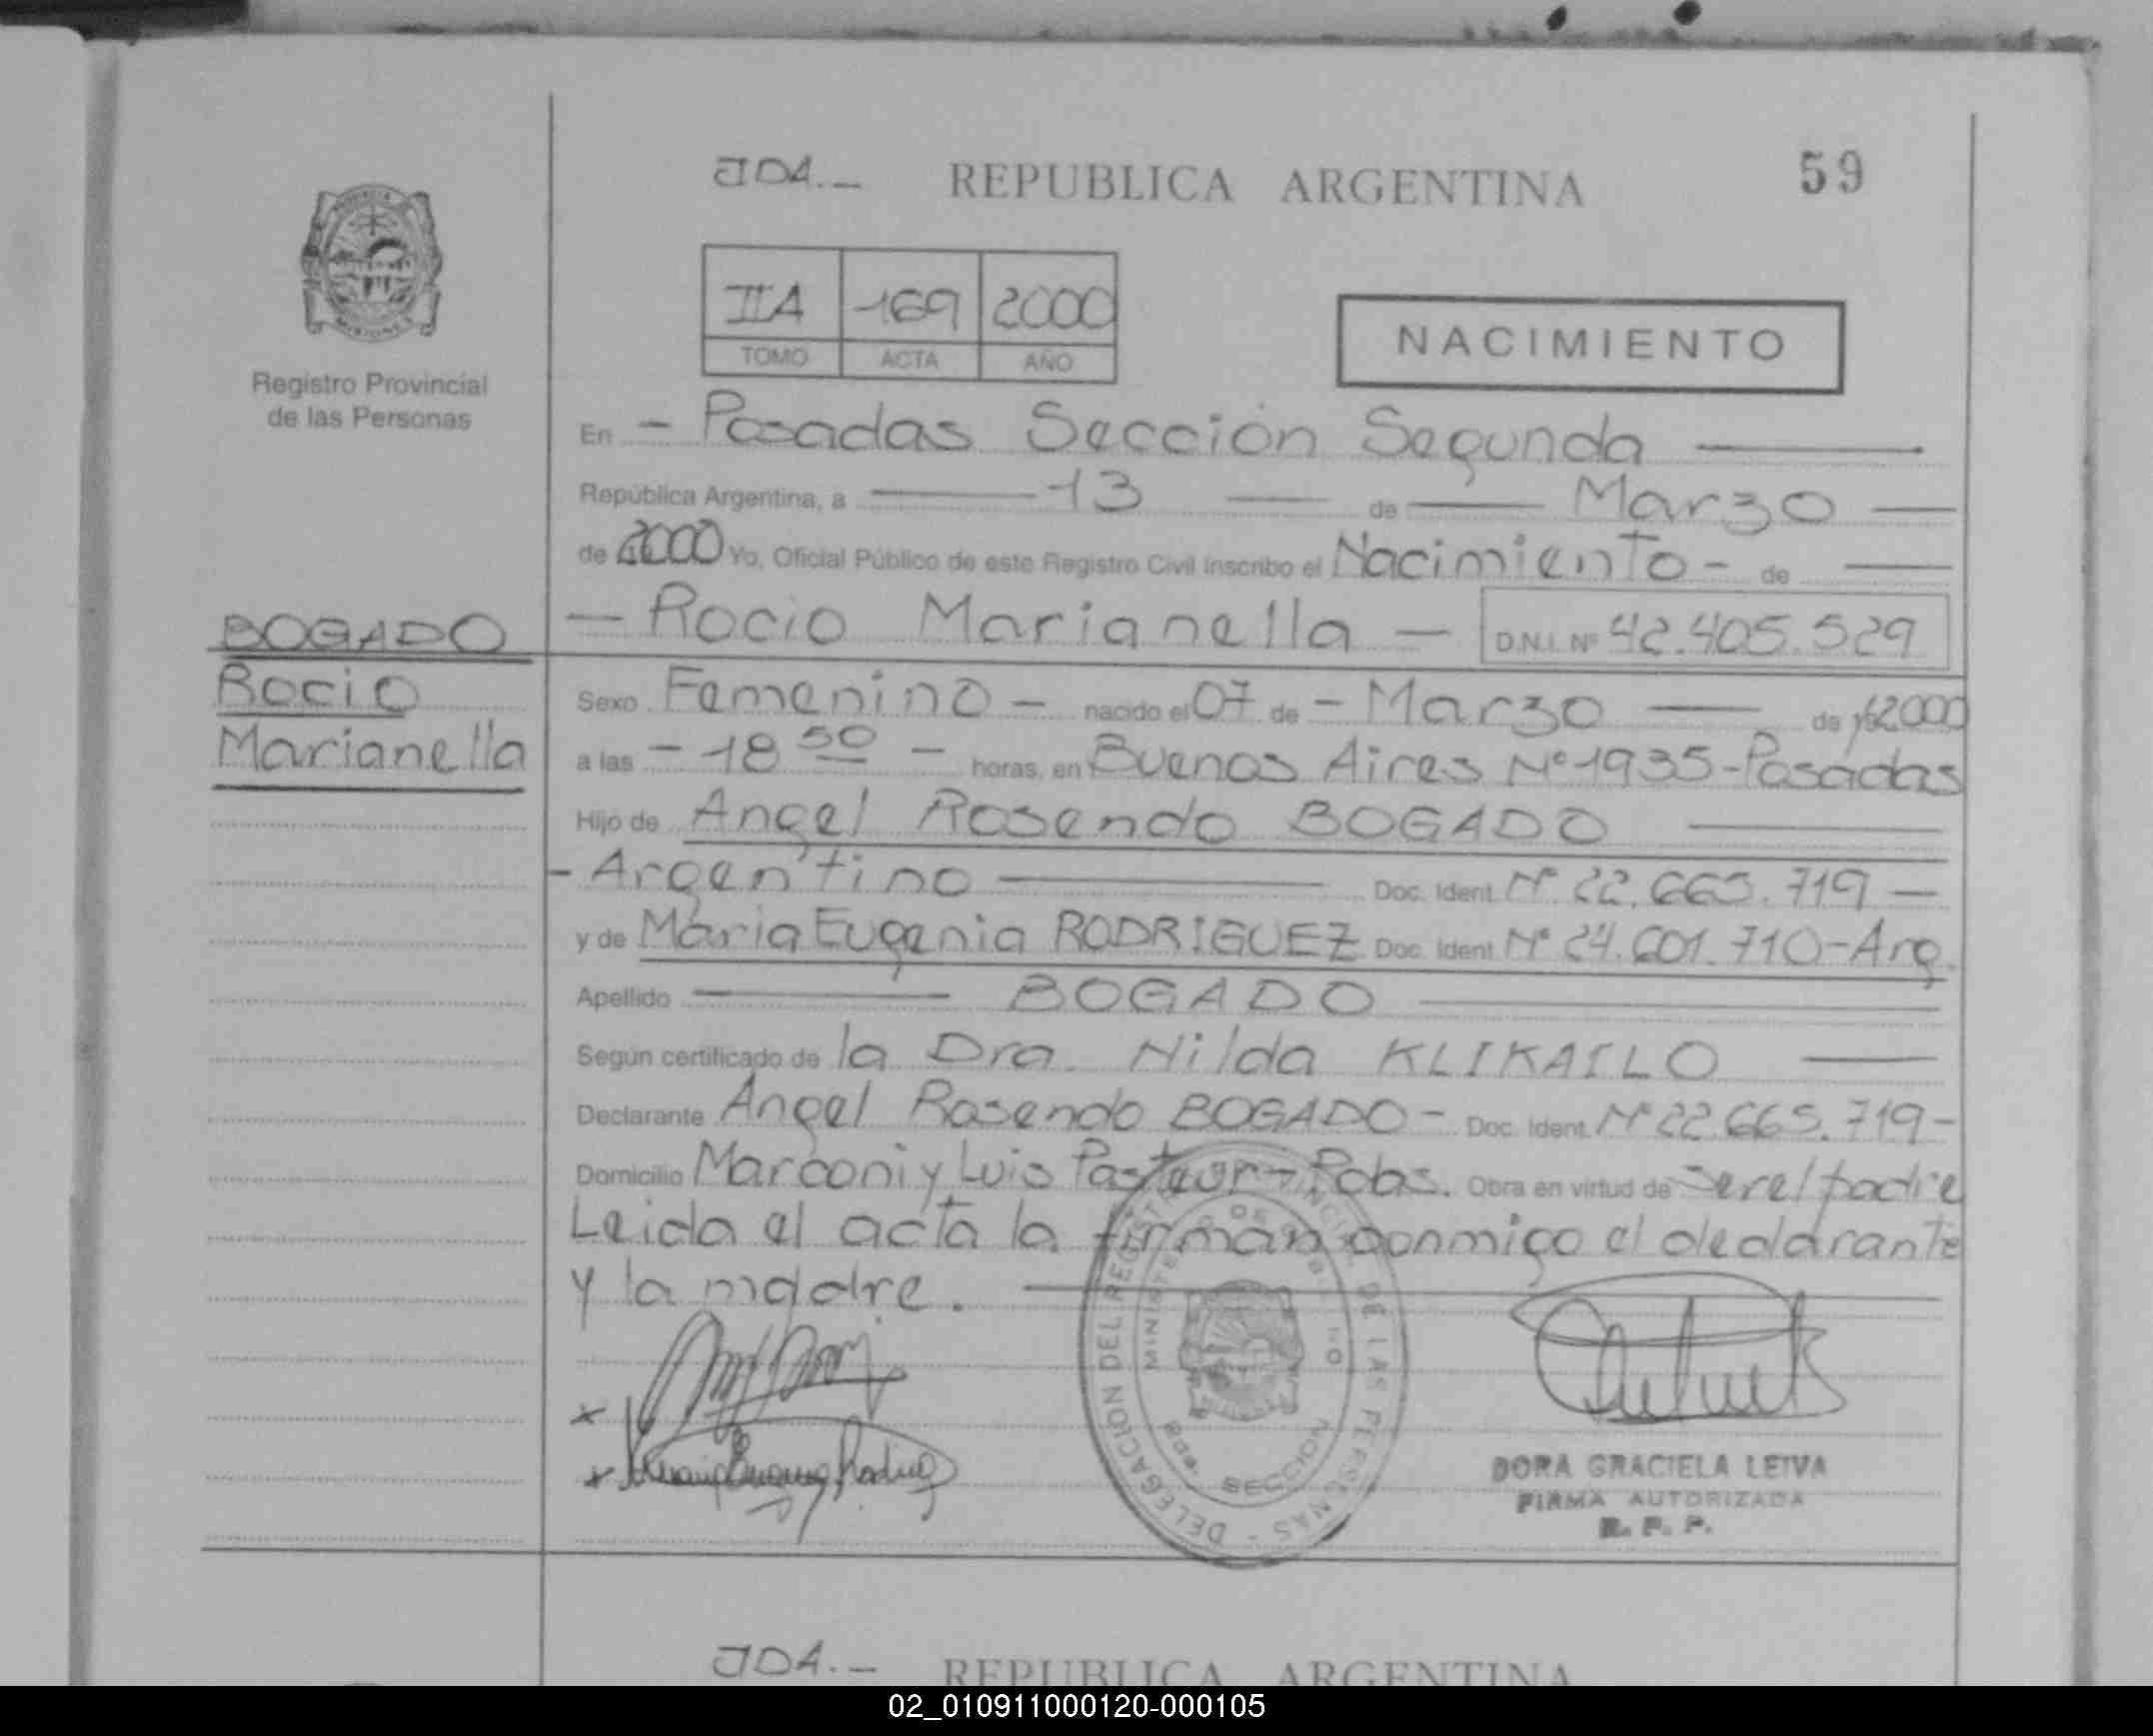 JDA.- REPUBLICA ARGENTINA 59
IIA 169 2000
TOMO ACTA AÑO
NACIMIENTO
Registro Provincial
de las Personas
En - Posadas Sección Segunda
República Argentina, a 13 de Marzo
de 2000 Yo, Oficial Público de este Registro Civil inscribo el Nacimiento - de
BOGADO
Rocio
Marianella
- Rocio Marianella - D.N.I. Nº 42.405.529
Sexo Femenino - nacido el 07 de - Marzo de 2000
a las - 18 50 - horas, en Buenos Aires Nº 1935-Posadas
Hijo de Angel Rosendo BOGADO
- Argentino Doc. Ident. Nº 22.665.719
y de María Eugenia RODRIGUEZ Doc. Ident. Nº 24.601.710-Arg.
Apellido BOGADO
Según certificado de la Dra. Hilda KLIKAILO
Declarante Angel Rosendo BOGADO - Doc. Ident. Nº 22.665.719-
Domicilio Marconi y Luis Pasteur - Pdas. Obra en virtud de ser el padre
Leida el acta la firman conmigo el declarante
y la madre.
DELEGACION DEL REGISTRO PROVINCIAL DE LAS PERSONAS
MINISTERIO DE GOBIERNO
SECCION
DORA GRACIELA LEIVA
FIRMA AUTORIZADA
R. P. P.
JDA.- REPUBLICA ARGENTINA
02_010911000120-000105